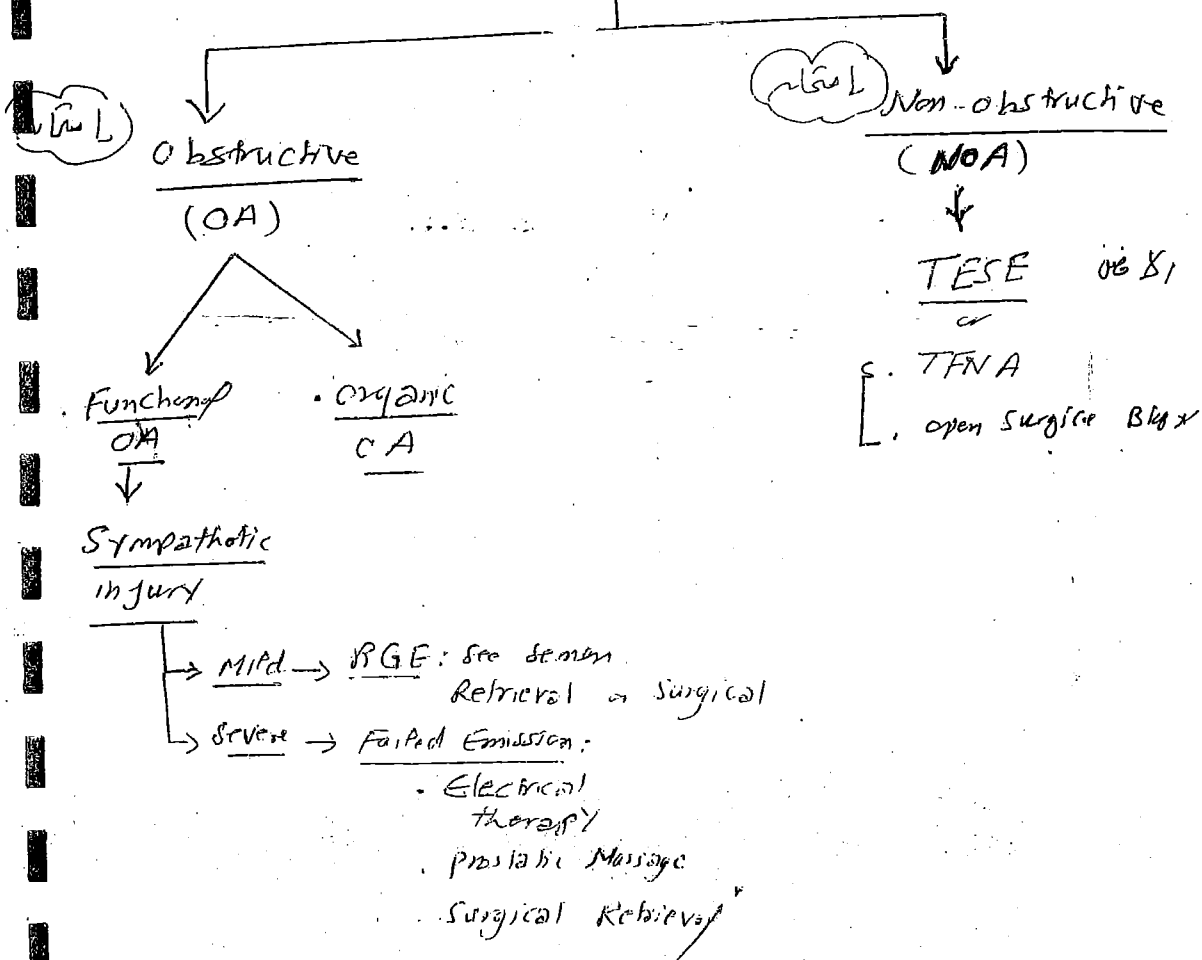 Obstructive
(OA)
Functional
OA
Organic
OA
Sympathetic
injury
Mild → RGE: See Semen
Retrieval or Surgical
Severe → Failed Emission:
. Electrical
therapy
. Prostatic Massage
. Surgical Retrieval
Non-obstructive
(NOA)
TESE
or
. TFNA
. open Surgical